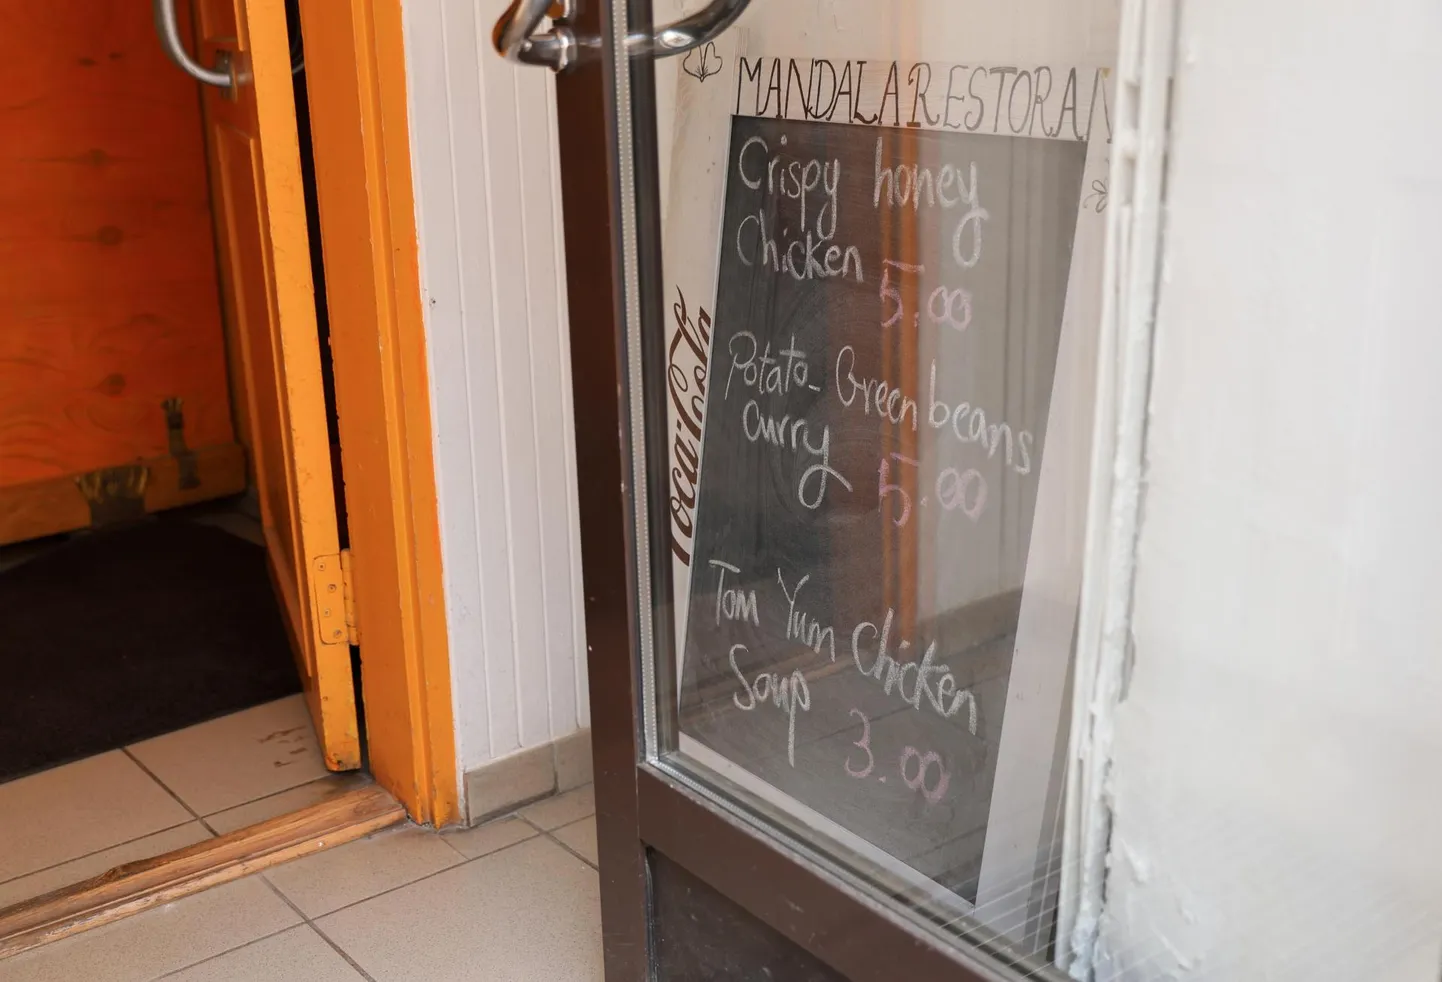 MANDALA RESTORAN
Crispy honey
Chicken 5.00
Potato- Green beans
curry 5.00
Tom Yum Chicken
Soup 3.00
Coca-Cola